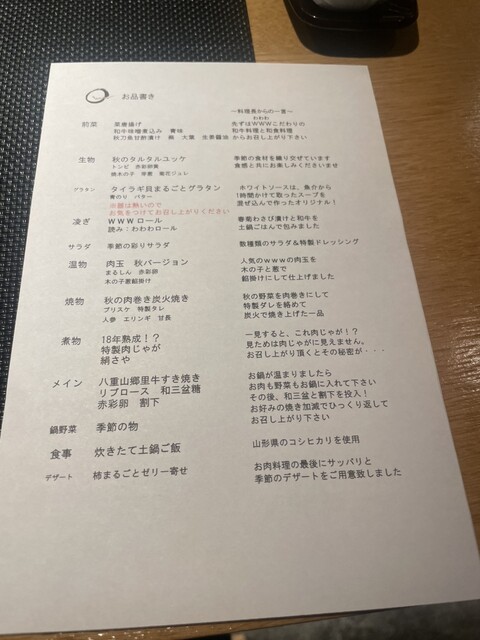 お品書き
～料理長からの一言～
前菜 菜唐揚げ
和牛味噌煮込み 青味
秋刀魚甘酢漬け 奏 大葉 生姜醤油
わわわ
先ずはＷＷＷこだわりの
和牛料理と和食料理
からお召し上がり下さい
生物 秋のタルタルユッケ
トンビ 赤彩卵黄
焼木の子 芽葱 菊花ジュレ
季節の食材を織り交ぜています
食感と共にお楽しみくださいませ
グラタン タイラギ貝まるごとグラタン
青のり バター
※器は熱いので
お気をつけてお召し上がりください
！ホワイトソースは、魚介から
1時間かけて取ったスープを
混ぜ込んで作ったオリジナル！
凌ぎ ｗｗｗロール
読み：わわわロール
春菊わさび漬けと和牛を
土鍋ごはんで包みました
サラダ 季節の彩りサラダ
数種類のサラダ＆特製ドレッシング
温物 肉玉 秋バージョン
まるしん 赤彩卵
木の子葱餡掛け
人気のｗｗｗの肉玉を
木の子と葱で
餡掛けにして仕上げました
焼物 秋の肉巻き炭火焼き
ブリスケ 特製タレ
人参 エリンギ 甘長
秋の野菜を肉巻きにして
特製ダレを絡めて
炭火で焼き上げた一品
煮物 18年熟成！？
特製肉じゃが
絹さや
一見すると、これ肉じゃが！？
見ためは肉じゃがに見えません。
お召し上がり頂くとその秘密が・・・
メイン 八重山郷里牛すき焼き
リブロース 和三盆糖
赤彩卵 割下
お鍋が温まりましたら
お肉も野菜もお鍋に入れて下さい
その後、和三盆と割下を投入！
お好みの焼き加減でひっくり返して
お召し上がり下さい
鍋野菜 季節の物
食事 炊きたて土鍋ご飯
山形県のコシヒカリを使用
デザート 柿まるごとゼリー寄せ
お肉料理の最後にサッパリと
季節のデザートをご用意致しました